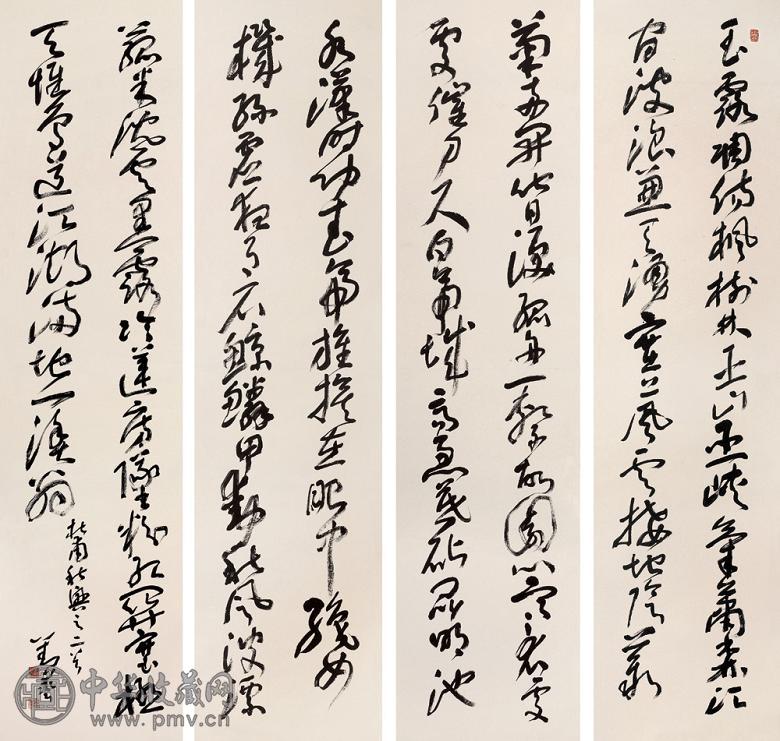 玉露凋傷楓樹林巫山巫峽氣蕭森江
間波浪兼天湧塞上風雲接地陰叢
菊兩開他日淚孤舟一繫故園心寒衣處
處催刀尺白帝城高急暮砧昆明池
水漢時功武帝旌旗在眼中織女
機絲虛夜月石鯨鱗甲動秋風波漂
菰米沉雲黑露冷蓮房墜粉紅關塞極
天惟鳥道江湖滿地一漁翁
杜甫秋興之二首
中华收藏网
www.pmv.cn